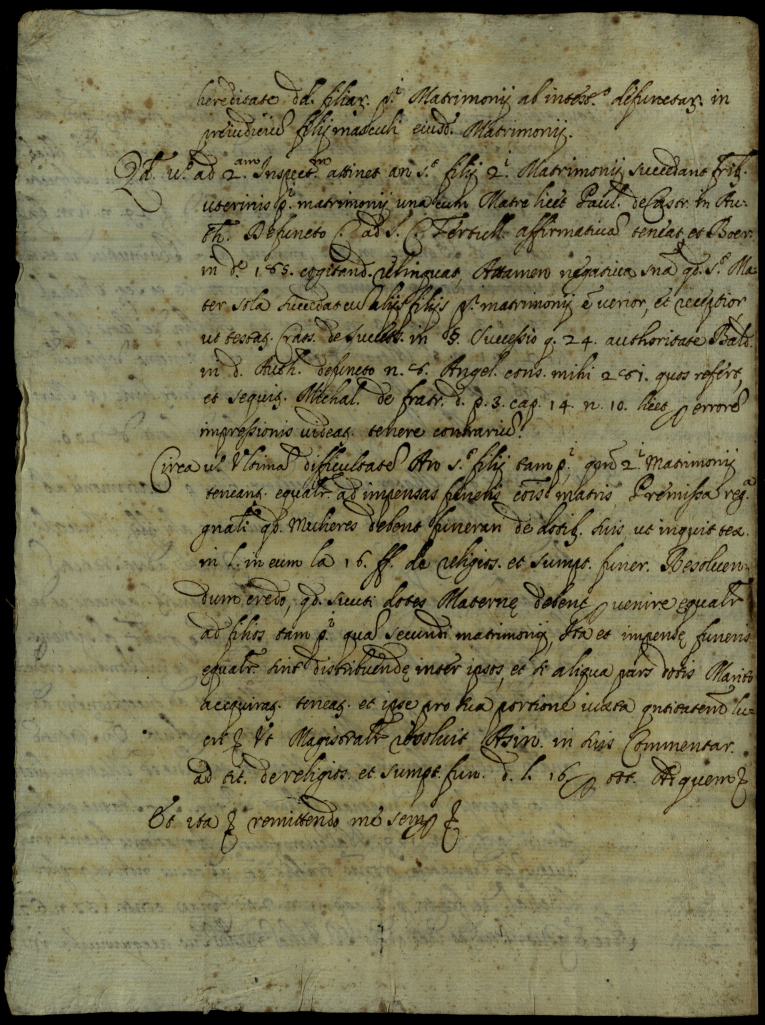 hereditate dd. filiar. p.i Matrimonij ab intest.o defunctar. in
preiudiciũ filij masculi eiusd. Matrimonij.
Qd. v.o ad 2.am Inspect.m attinet an s.e filij 2.i Matrimonij succedant frib.
uterinis p.i matrimonij una cum Matre licet Paul. de Castr. in Au-
th. Defuncto C. ad S. C. Tertull. affirmativã teneat, et Boer.
in d. 185. cogitand. relinquat, Attamen negativa sña qd. s.e Ma-
ter sola succedat cũ alijs filijs p.i matrimonij ẽ verior, et receptior
ut testat. Grats. de success. in §. Successio q. 24. authoritate Bald.
in d. Auth. defuncto n. 6. Angel. cons. mihi 261. quos refert,
et sequit. Michal. de fratr. d. p. 3. cap. 14. n. 10. licet p errorẽ
impressionis videat. tenere contrariũ.
Circa vl. Ultimã difficultatẽ An s.e filij tam p.i quã 2.i Matrimonij
teneant. equalr. ad impensas funeris eor. matris Premissa reg.a
gnali qd. Mulieres debent funerari de dotib. suis ut inquit tex.
in l. in eum la 16. ff. de religios. et sumpt. funer. Resolven-
dum credo, qd. sicuti dotes Maternę debent pvenire equalr.
ad filios tam p.i quã secundi matrimonij, Ita et impensę funeris
equalr. sint distribuendę inter ipsos, et si aliqua pars dotis Marito
acquirat. teneat. et ipse pro sua portione iuxta qntitatem lu-
cri &c. Ut Magistralr. resoluit Asin. in suis Commentar.
ad tit. de religios. et sumpt. fun. d. l. 16 p tot. Ad quem &c.
Et ita &c. remittendo me semp &c.